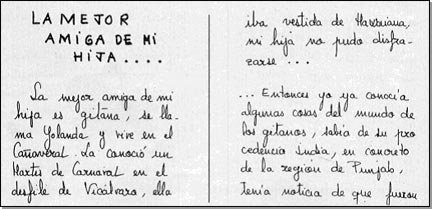 LA MEJOR
AMIGA DE MI
HIJA....
La mejor amiga de mi
hija es gitana, se lla-
ma Yolanda y vive en el
Cañaveral. La conoció un
Martes de Carnaval en el
desfile de Vicálvaro, ella
iba vestida de Hawaiana,
mi hija no pudo disfra-
zarse...
... Entonces yo ya conocía
algunas cosas del mundo de
los gitanos, sabía de su pro
cedencia India, en concreto
de la región de Punjab,
Tenía noticia de que fueron